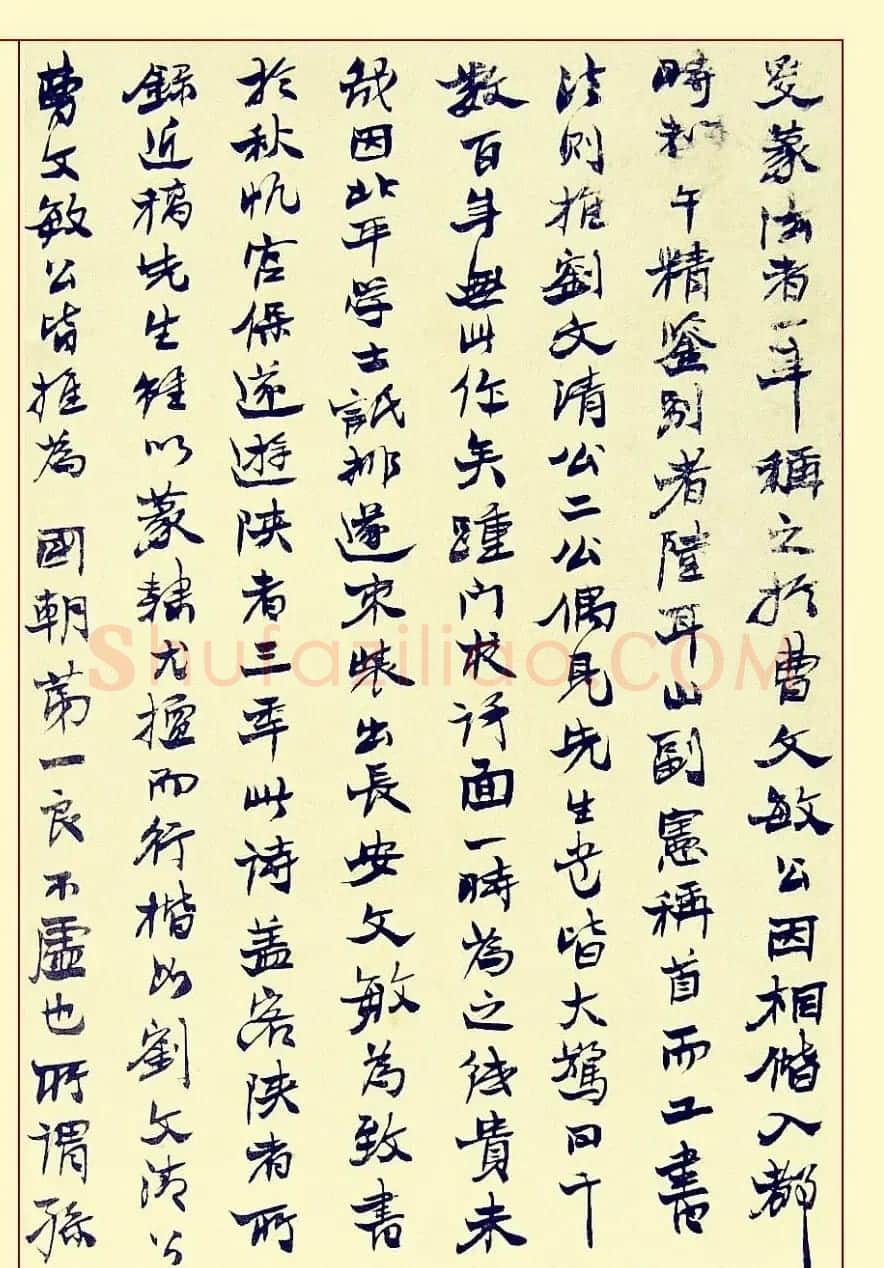 受篆法者一年稱之於曹文敏公因相偕入都
時都中精鑒別者陸耳山副憲稱首而工書
法則推劉文清公二公偶見先生書皆大驚曰千
數百年無此作矣踵門投詩面一時為之紙貴未
幾因北平學士詆排遂束裝出長安文敏為致書
於秋帆宮保遂遊陝者三年此詩蓋客陝者所
錄近稿先生雖以篆隸尤擅而行楷如劉文清公
曹文敏公皆推為 國朝第一良不虛也所謂孫
Shufaziliao.COM